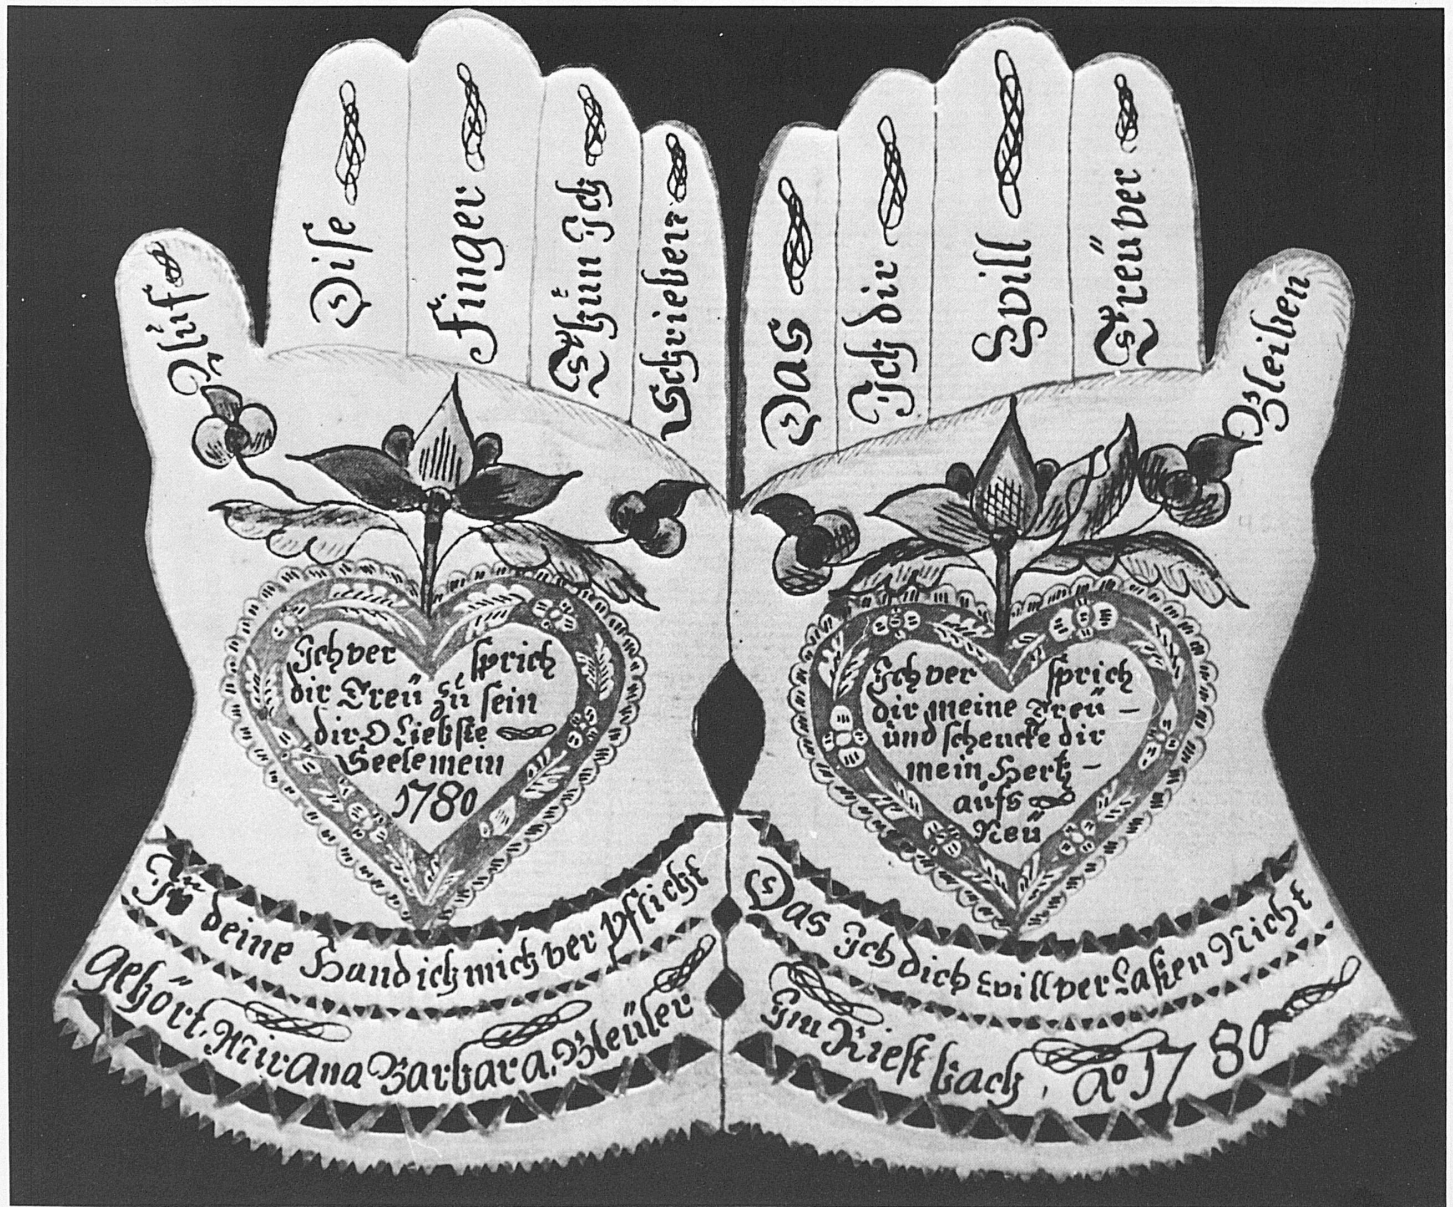 Auf
Dise
Finger
Thün Ich
Schrieben
Das
Ich dir
will
Treü ver
Bleiben
Ich ver sprich
dir Treü zü sein
dir O Liebste
Seele mein
1780
Ich ver sprich
dir meine Treü –
ünd schencke dir
mein Hertz –
aüfs
Neü
In deine Hand ich mich ver pflicht
Das Ich dich will ver Laßen Nicht
gehört. Mir Ana Barbara. Bleüler
Im Riestbach, Ao 1780